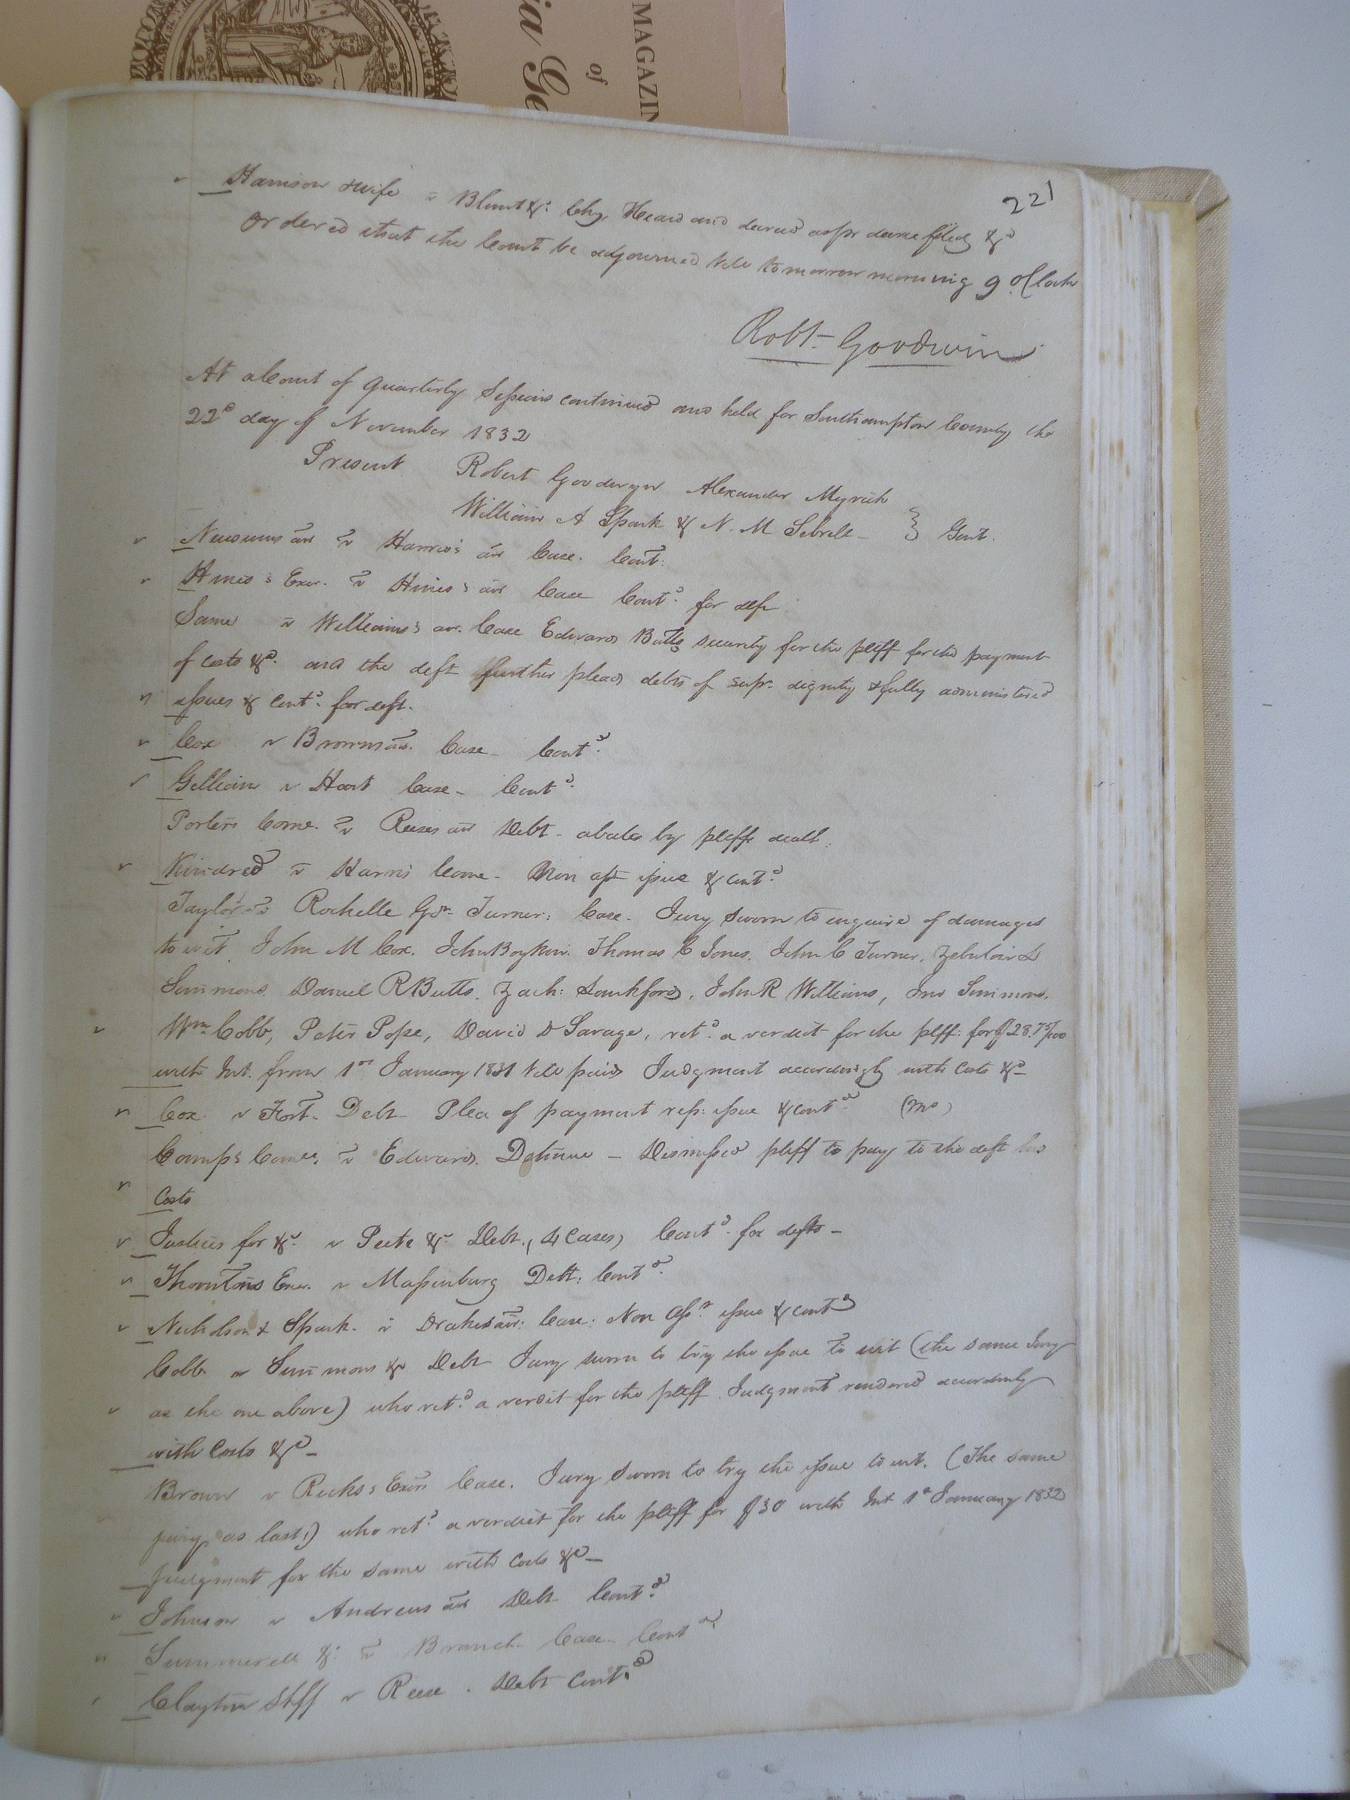 MAGAZIN
of
ia Ge
221
Harrison & wife v Blunt &c. Chy. Heard and decreed as pr decree filed &c
Ordered that the Court be adjourned till tomorrow morning 9 oClock
Robt. Goodwin
At a Court of Quarterly Sessions continued and held for Southampton County the
22d day of November 1832
Present Robert Goodwyn Alexander Myrick
William A Spark & N. M Sebrell } Gent.
Newsums adr v Harris's adr Case. Cont.
Hines's Exor. v Hines's adr Case Contd. for deft
Same v Williams's adr. Case Edward Butts security for the pltff for the payment
of costs &c. and the deft further pleads debts of supr. dignity & fully administered
issues & contd. for deft.
Cox v Browns adr. Case - Contd.
Gilliam v Hart Case - Contd.
Porters Come. v Reeses adr Debt - abates by pltffs death.
Kindred v Harris Come - Non apt issue & contd.
Taylor v Rochelle Gdn. Turner: Case - Jury sworn to enquire of damages
to wit. John M Cox, John Boykin, Thomas C Jones, John C Turner, Zebulon L
Simmons, Daniel R Butts, Zach: Lankford, John R Williams, Jno Simmons,
Wm Cobb, Peter Pope, David D Savage, retd. a verdict for the pltff: for $28.75/100
with Int. from 1st January 1831 till paid Judgment accordingly with Costs &c -
Cox v Fort. Debt Plea of payment rep: issue & contd. (Mo)
Camps's Comee. v Edwards. Detinue - Dismissed pltff to pay to the deft his
Costs
Justices for &c. v Peete &c Debt, (4 Cases) Contd. for defts -
Thorntons Exr. v Massenburg Debt: Contd.
Nicholson & Spark. v Drakes adr: Case: Non Asst. issue & contd
Cobb v Simmons &c Debt Jury sworn to try the issue to wit (the same Jury
as the one above) who retd. a verdict for the pltff. Judgment rendered accordingly
with Costs &c -
Brown v Ricks's Exrs Case. Jury sworn to try the issue to wit. (The same
jury as last.) who retd. a verdict for the pltff for $30 with Int 1st January 1832
Judgment for the same with Costs &c -
Johnson v Andrews adr Debt Contd.
Summerell &c. v Branch Case - Contd
Clayton Stff v Reese. Debt Contd.